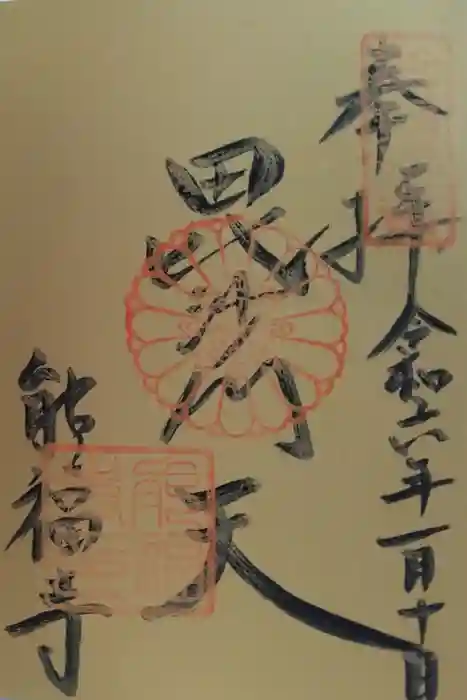 奉拝
令和六年一月十日
毘沙門天
能福寺